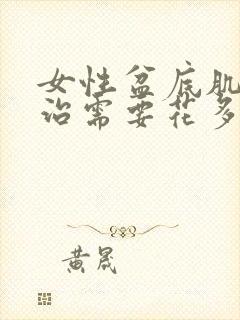 女性盆底肌
治需要花多
黄晟